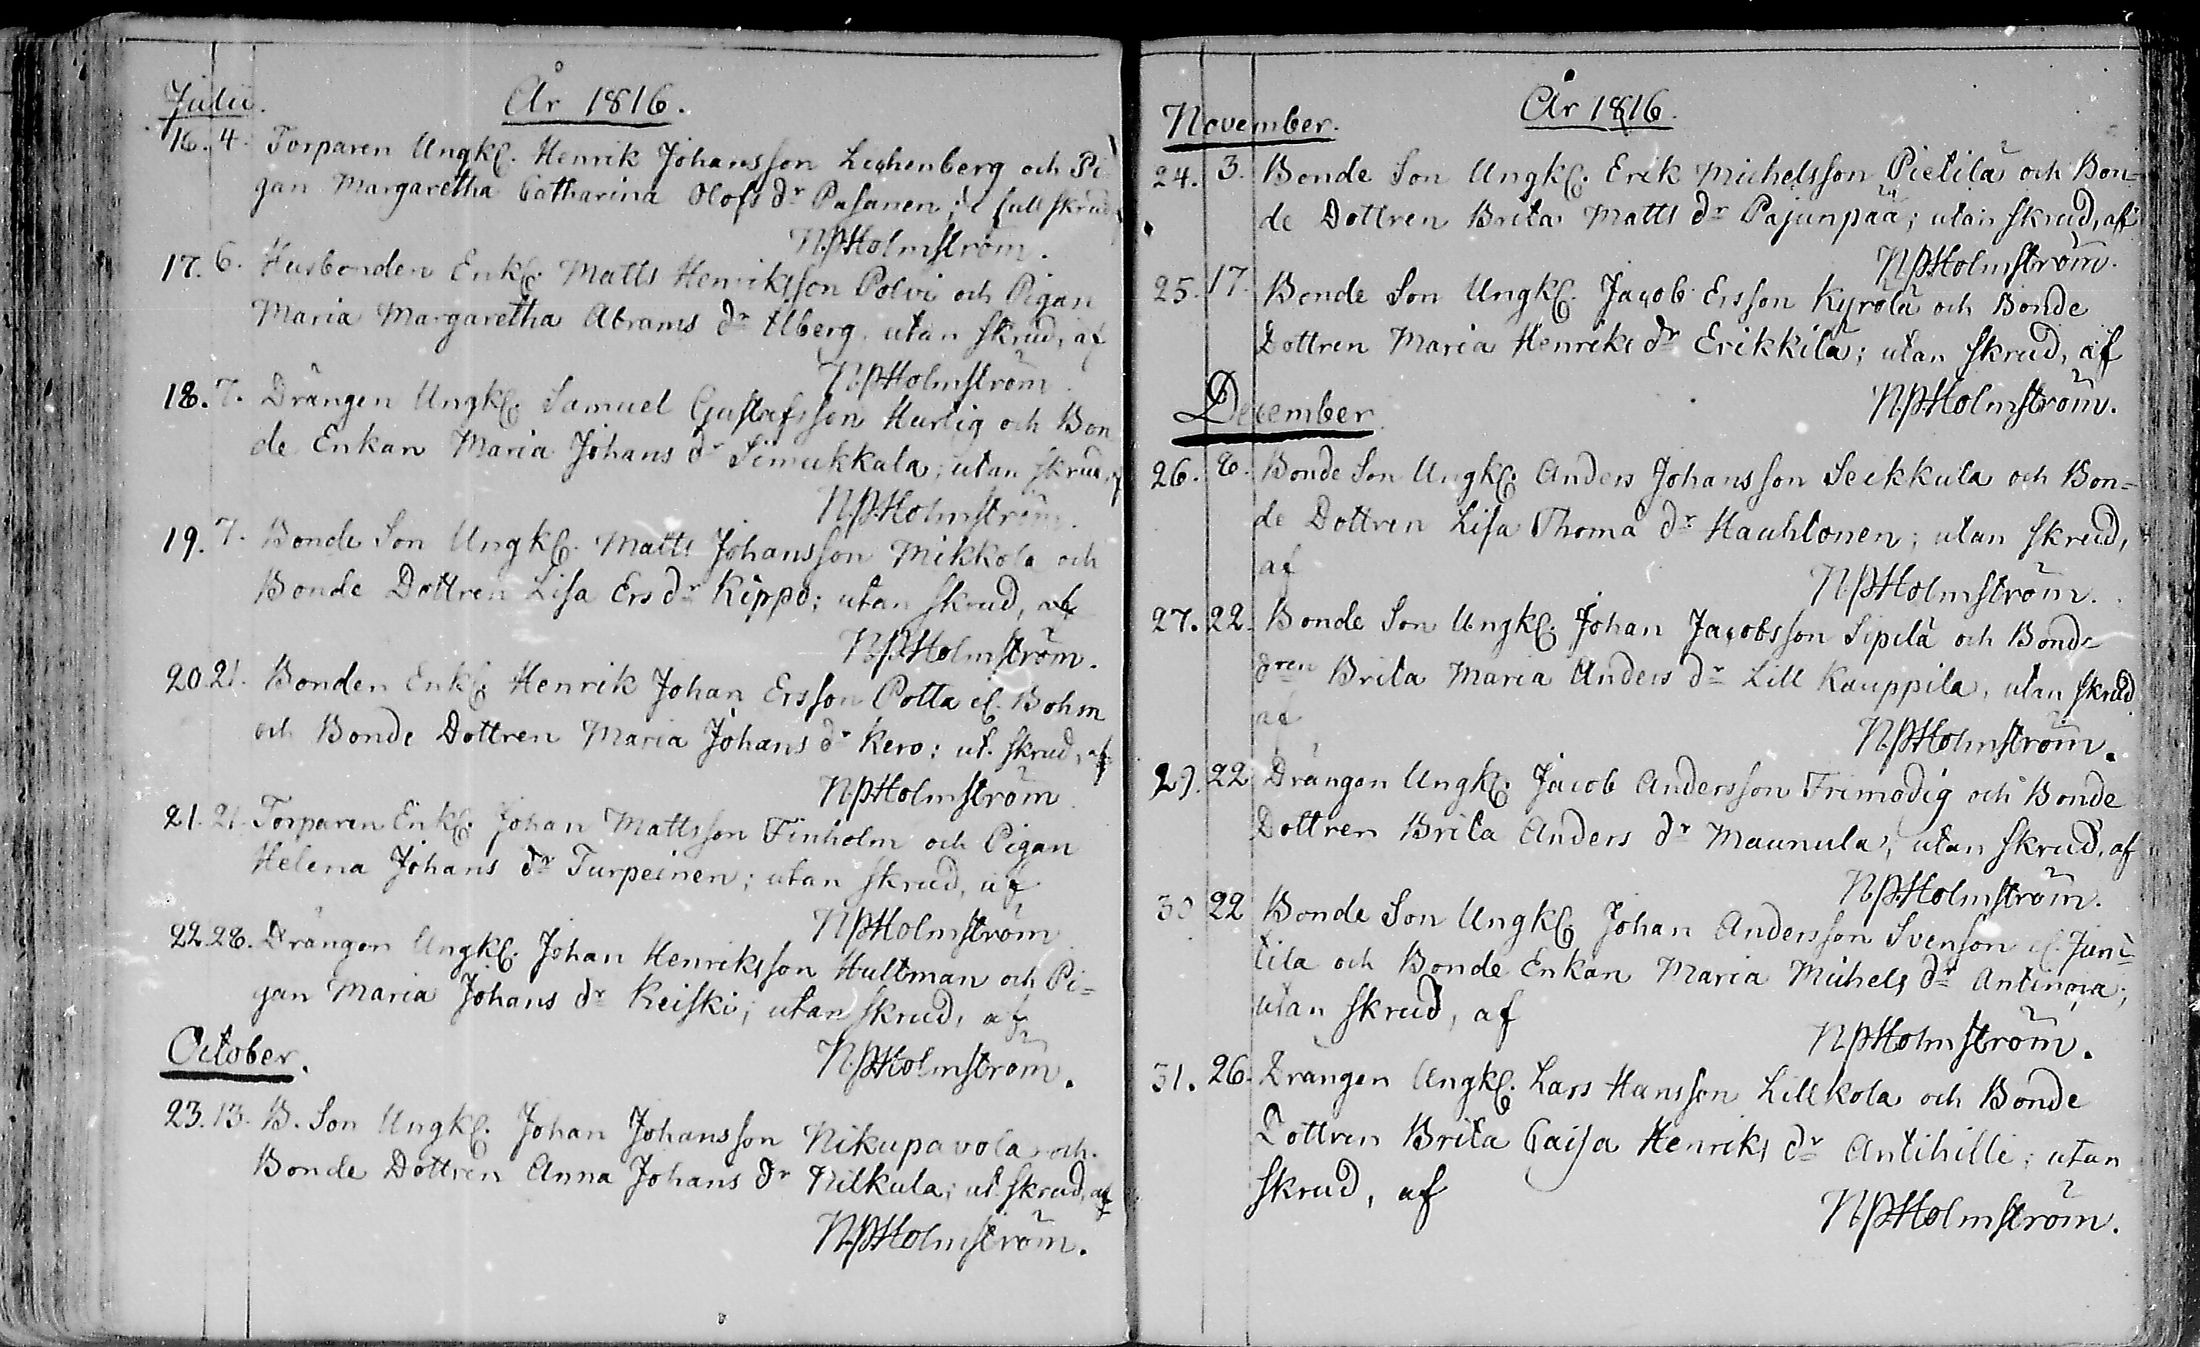 Julii.
År 1816.
16. 4. Torparen Ungk. Henrik Johansson Lichenberg och Pi
gan Margaretha Catharina Olofs dr Pasanen, i full skrud
N.P.Holmström.
17. 6. Husbonden Enkl. Matts Henriksson Polvi och Pigan
Maria Margaretha Abrams dr Ulberg, utan skrud, af
N.P.Holmström
18. 7. Drängen Ungk. Samuel Gustafsson Hurtig och Bon
de Enkan Maria Johans dr Simukkala; utan skrud, af
N.P.Holmström.
19. 7. Bonde Son Ungk. Matts Johansson Mikkola och
Bonde Dottren Lisa Ers dr Kippo; utan skrud, af
N.P.Holmström.
20. 21. Bonden Enkl. Henrik Johan Ersson Potta el. Bohm
och Bonde Dottren Maria Johans dr Kero; ut. skrud, af
N.P.Holmström
21. 21. Torparen Enkl. Johan Mattsson Finholm och Pigan
Helena Johans dr Turpeinen; utan skrud, af
N.P.Holmström
22. 28. Drängen Ungk. Johan Henriksson Hultman och Pi=
gan Maria Johans dr Keiski; utan skrud, af
N.P.Holmström.
October.
23. 13. B. Son Ungk. Johan Johansson Nikupavola och
Bonde Dottren Anna Johans dr Nilkula; ut. skrud, af
N.P.Holmström.
År 1816.
November.
24. 3. Bonde Son Ungk. Erik Michelsson Pietilä och Bon=
de Dottren Brita Matts dr Pajunpää; utan skrud, af
N.P.Holmström.
25. 17. Bonde Son Ungk. Jacob Ersson Kyrölä och Bonde
Dottren Maria Henriks dr Erikkilä; utan skrud, af
N.P.Holmström.
December
26. 8. Bonde Son Ungk. Anders Johansson Seikkula och Bon=
de Dottren Lisa Thoma dr Hauhtonen; utan skrud,
af
N.P.Holmström.
27. 22. Bonde Son Ungk. Johan Jacobsson Sipilä och Bonde
dren Brita Maria Anders dr Lill Kauppila, utan skrud
af
N.P.Holmström.
29. 22 Drängen Ungk. Jacob Andersson Frimodig och Bonde
Dottren Brita Anders dr Maunula, utan skrud, af
N.P.Holmström.
30 22 Bonde Son Ungk. Johan Andersson Svenson el. Jun=
tila och Bonde Enkan Maria Michels dr Antinoia;
utan skrud, af
N.P.Holmström.
31. 26. Drängen Ungk. Lars Hansson Lillkola och Bonde
Dottren Brita Caisa Henriks dr Antihilli; utan
skrud, af
N.P.Holmström.